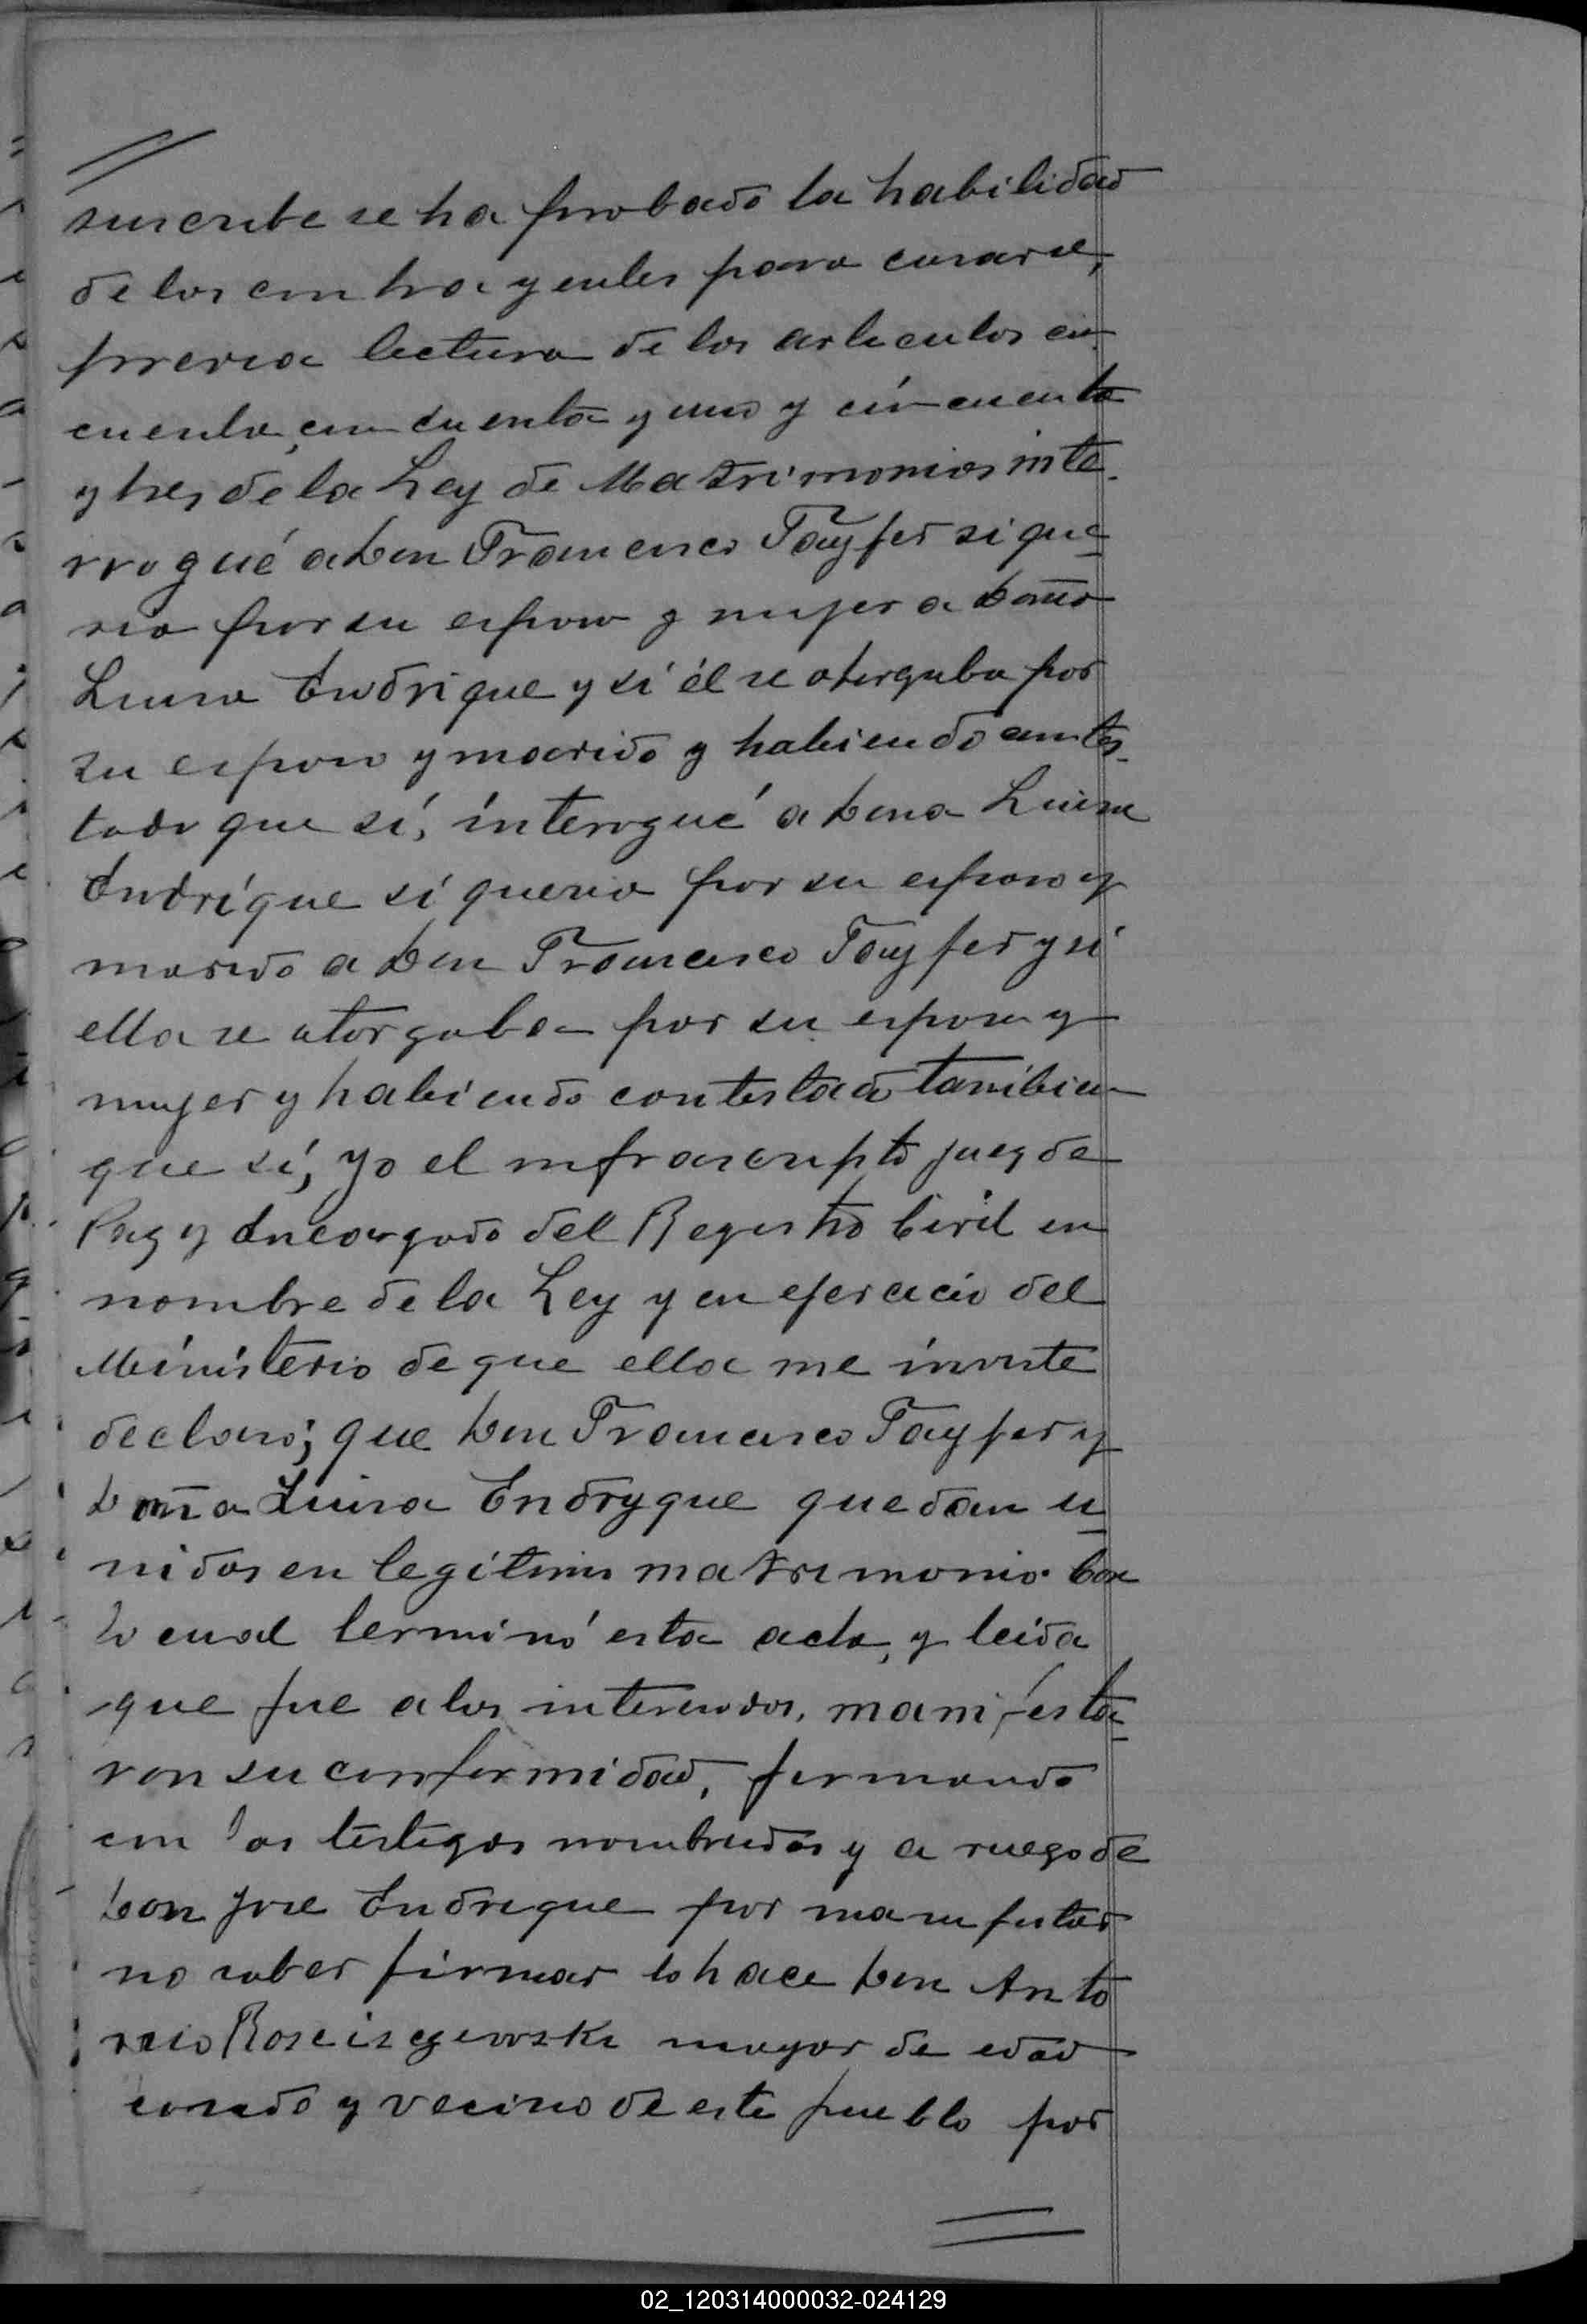 suscribe se ha probado la habilidad
de los contrayentes para casarse,
previa lectura de los articulos cin
cuenta, cincuenta y uno y cincuenta
y tres de la Ley de Matrimonios inte-
rrogué a Don Francisco Tayfer si que
ria por su esposa y mujer a Doña
Luisa Endrique y si él se otorgaba por
su esposo y marido y habiendo contes-
tado que sí, interogué a Dona Luisa
Endríque si queria por su esposo y
marido a Don Francisco Tayfer y si
ella se otorgaba por su esposa y
mujer y habiendo contestado tambien
que sí, yo el infrascripto juez de
Paz y Encargado del Registro Civil en
nombre de la Ley y en ejercicio del
Ministerio de que ella me inviste
declaro; que Don Francisco Tayfer y
Doña Luisa Endryque quedan u
nidos en legítimo matrimonio. Con
lo cual terminó esta acta, y leida
que fue a los interesados, manifesta
ron su conformidad, firmando
con los testigos nombrados y a ruego de
Don Jose Endrique por manifestar
no saber firmar lo hace Don Anto
nio Rosciszewski mayor de edad
casado y vecino de este pueblo por
02_120314000032-024129